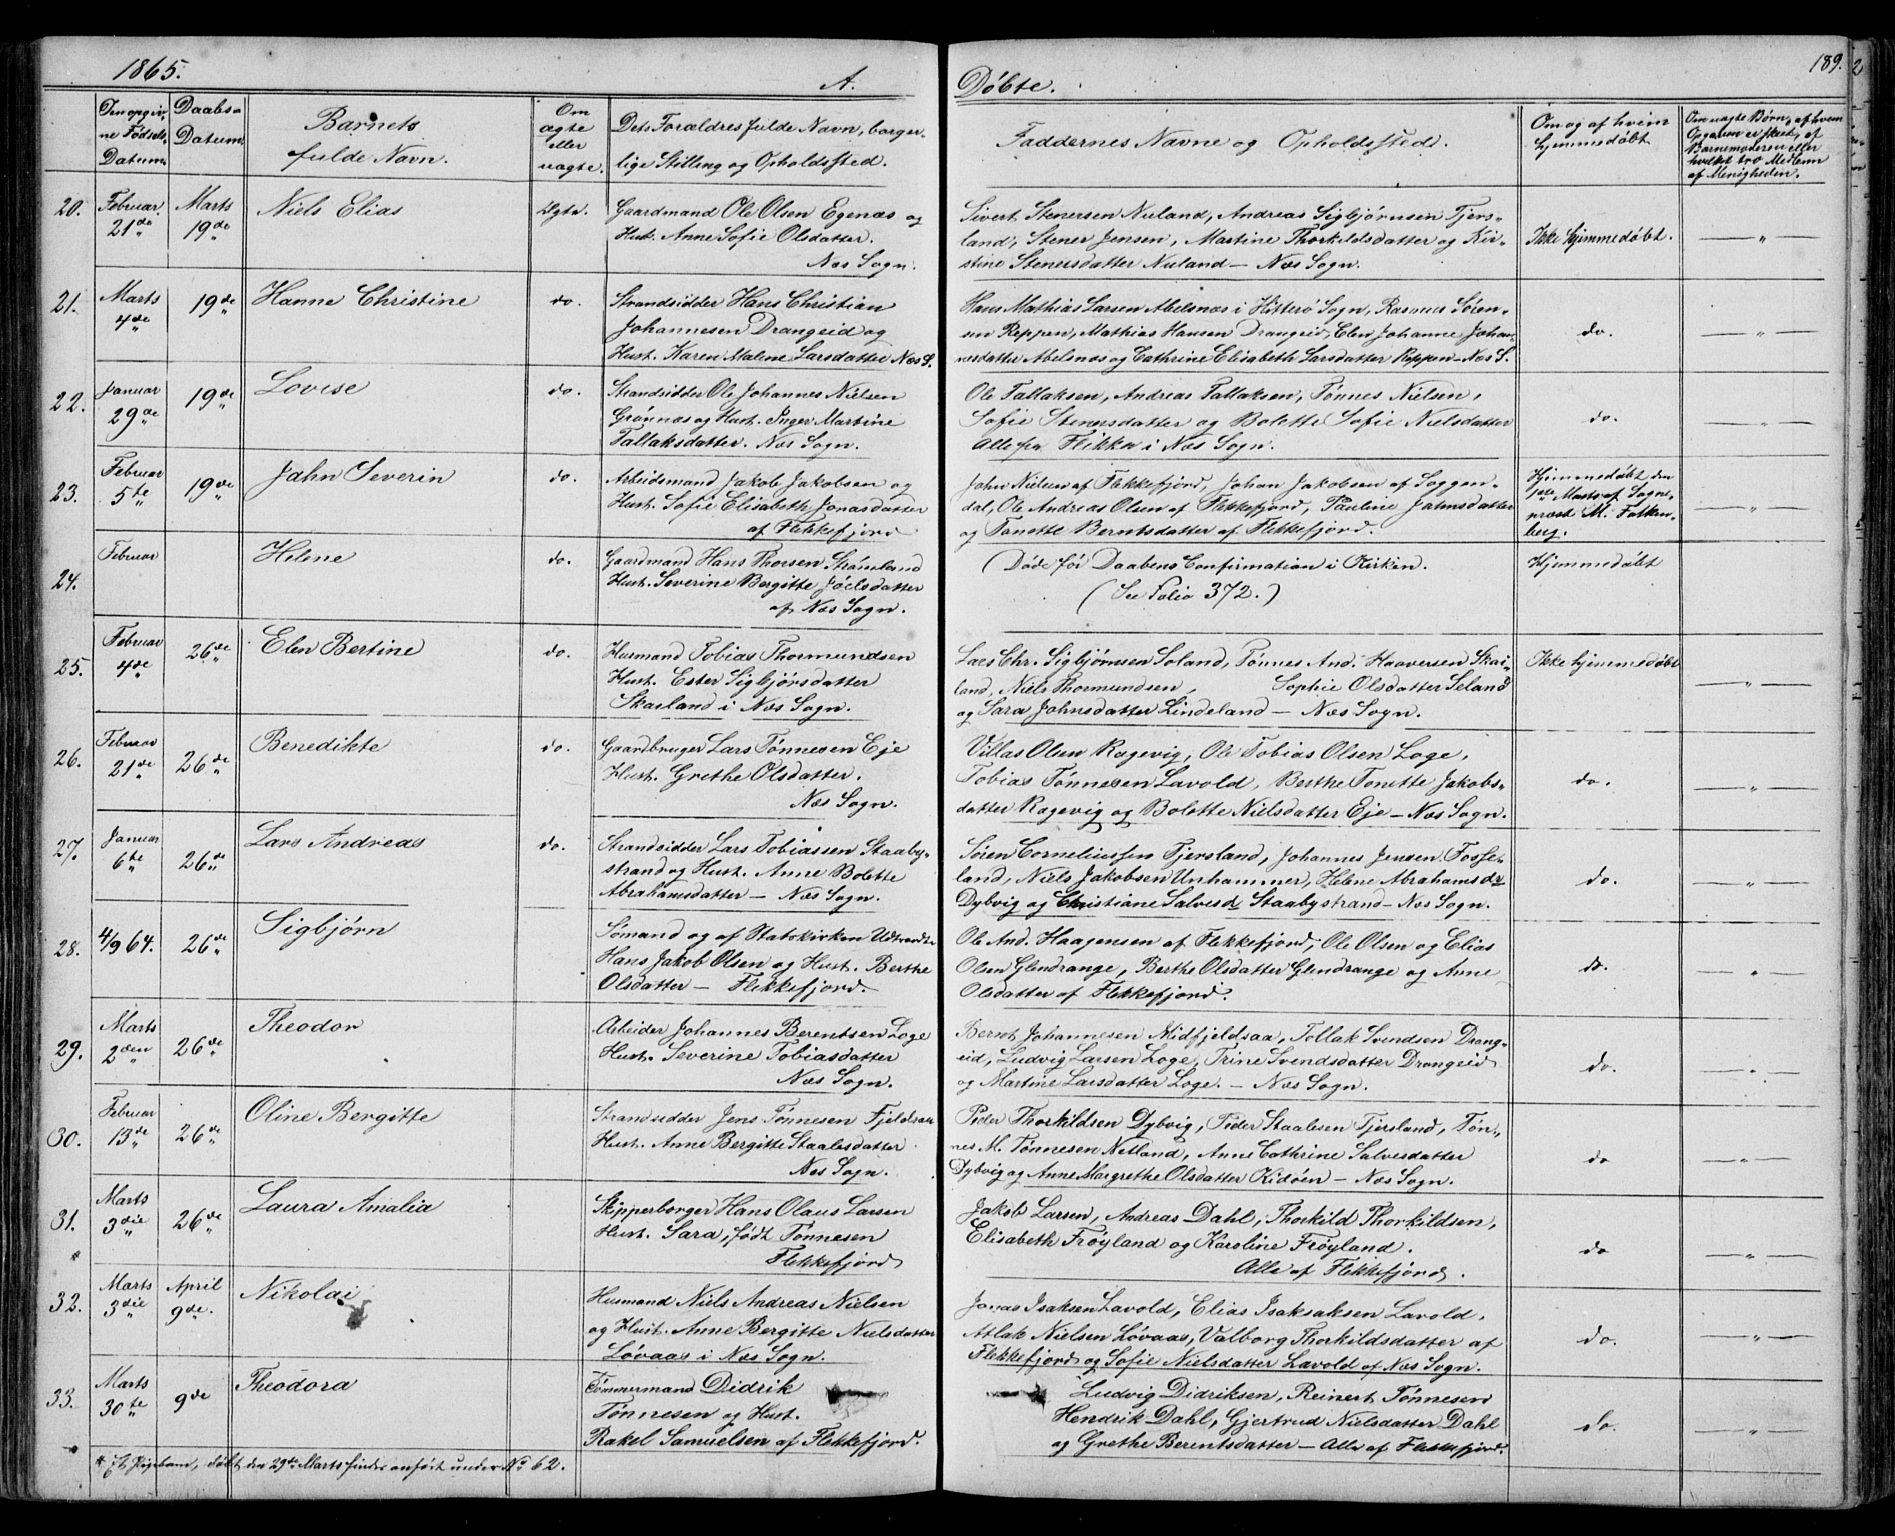 1865.
A.
Døbte.
189.
Den opgiv-
ne Fødsels-
Datum.
Daabs-
Datum.
Barnets
fulde Navn.
Om
ægte
eller
uægte.
Dets Forældres fulde Navn, borger-
lige Stilling og Opholdssted.
Faddernes Navne og Opholdssted.
Om og af hvem
hjemmedøbt.
Om uægte Børn, af hvem
Opgaven er skeet, af
Barnemoderen eller
hvilket tro Medlem
af Menigheden.
20.
Februar
21de
Marts
19de
Niels Elias
Ægte.
Gaardmand Ole Olsen Egenæs og
Hust. Anne Sofie Olsdatter.
Næs Sogn.
Sivert Stenersen Nuland, Andreas Sigbjørnsen Tjers-
land, Stener Jensen, Martine Thorkildsdatter og Kir-
stine Stenersdatter Nuland — Næs Sogn.
Ikke hjemmedøbt.
— " —
21.
Marts
4de
19de
Hanne Christine
do.
Strandsidder Hans Christian
Johannesen Drangeid og
Hust. Karen Malene Larsdatter Næs S.
Hans Mathias Larsen Abelsnæs i Hitterø Sogn, Rasmus Søren-
sen Reppen, Mathias Hansen Drangeid, Elen Johanne Johan-
nesdatter Abelsnæs og Cathrine Elisabeth Larsdatter Reppen - Næs S.
do.
— " —
22.
Januar
29de
19de
Lovise
do.
Strandsidder Ole Johannes Nielsen
Grønnæs og Hust. Inger Martine
Tallaksdatter. Næs Sogn.
Ole Tallaksen, Andreas Tallaksen, Tønnes Nielsen,
Sofie Stenersdatter og Bolette Sofie Nielsdatter
Alle fra Flikka i Næs Sogn.
do.
— " —
23.
Februar
5te
19de
Jahn Severin
do.
Arbeidsmand Jakob Jakobsen og
Hust. Sofie Elisabeth Jonasdatter
af Flekkefjord
John Nielsen af Flekkefjord, Johan Jakobsen af Soggen-
dal, Ole Andreas Olsen af Flekkefjord, Pauline Jahnsdatter
og Tonette Berntsdatter af Flekkefjord.
Hjemmedøbt den
Marts af Sogne-
præst M. Falken-
berg.
— " —
24.
Februar
Helene
do.
Gaardmand Hans Thorsen Strømland
Hust. Severine Bergitte Joelsdatter
af Næs Sogn.
(Døde før Daabens Confirmation i Kirken.
(See Folio 372.)
Hjemmedøbt
25.
Februar
4de
26de
Elen Bertine
do.
Husmand Tobias Thormundsen
Hust. Ester Sigbjørsdatter
Skasland i Næs Sogn.
Lars Chr. Sigbjørnsen Soland, Tønnes And. Haaversen Skas-
land, Niels Thormundsen, Sophie Olsdatter Seland
og Sara Johnsdatter Lindeland — Næs Sogn.
Ikke hjemmedøbt
— " —
26.
Februar
21de
26de
Benedikte
do.
Gaardbruger Lars Tønnesen Eje
Hust. Grethe Olsdatter.
Næs Sogn.
Villas Olsen Ragevig, Ole Tobias Olsen Loge,
Tobias Tønnesen Lavold, Berthe Tonette Jakobs-
datter Ragevig og Bolette Nielsdatter Eje — Næs Sogn.
do.
— " —
27.
Januar
6te
26de
Lars Andreas
do.
Strandsidder Lars Tobiassen Staaby-
strand og Hust. Anne Bolette
Abrahamsdatter — Næs Sogn.
Søren Corneliussen Tjersland, Johannes Jensen Fosse-
land, Niels Jakobsen Unhammer, Helene Abrahamsdr
Dybvig og Christiane Salvesd Staabystrand — Næs Sogn.
do.
— " —
28.
4/9 64.
26de
Sigbjørn
Sømand og af Statskirken Udtraadte
Hans Jakob Olsen og Hust. Berthe
Olsdatter — Flekkefjord.
Ole And. Haagensen af Flekkefjord, Ole Olsen og Elias
Olsen Glendrange, Berthe Olsdatter Glendrange og Anne
Olsdatter af Flekkefjord.
do.
"
29.
Marts
2den
26de
Theodor
Arbeider Johannes Berentsen Loge
Hust. Severine Tobiasdatter
Næs Sogn.
Bernt Johannesen Midfjeldsaa, Tollak Svendsen Drang-
eid, Ludvig Larsen Loge, Trine Svendsdatter Drangeid
og Martine Larsdatter Loge. — Næs Sogn.
do.
— " —
30.
Februar
13de
26de
Oline Bergitte
Strandsidder Jens Tønnesen Fjeldsaa
Hust. Anne Bergitte Staalesdatter
Næs Sogn.
Peder Thorkildsen Dybvig, Peder Staalesen Tjersland, Tøn-
nes M. Tønnesen Netland, Anne Cathrine Salvesdatter
Dybvig og Anne Margrethe Olsdatter Kidøen — Næs Sogn.
do
— " —
31.
*
Marts
3die
26de
Laura Amalia
Skipperborger Hans Olaus Larsen
Hust. Sara, født Tønnesen
Flekkefjord
Jakob Larsen, Andreas Dahl, Thorkild Thorkildsen,
Elisabeth Frøyland og Karoline Frøyland.
Alle af Flekkefjord.
do
— " —
32.
Marts
3die
April
9de.
Nikolai
Husmand Niels Andreas Nielsen
og Hust. Anne Bergitte Nielsdatter
Løvaas i Næs Sogn.
Jonas Isaksen Lavold, Elias Isaksaksen Lavold,
Atlak Nielsen Løvaas, Valborg Thorkildsdatter af
Flekkefjord og Sofie Nielsdatter Lavold af Næs Sogn.
do.
— " —
33.
Marts
30te
9de
Theodora
Tømmermand Didrik
Tønnesen og Hust.
Rakel Samuelsen af Flekkefjord.
Ludvig Didriksen, Reinert Tønnesen
Hendrik Dahl, Gjertrud Nielsdatter Dahl
og Grethe Berentsdatter — Alle af Flekkefjord.
do.
— " —
* Et Pigebarn, døbt den 29de Marts findes anført under No 62.